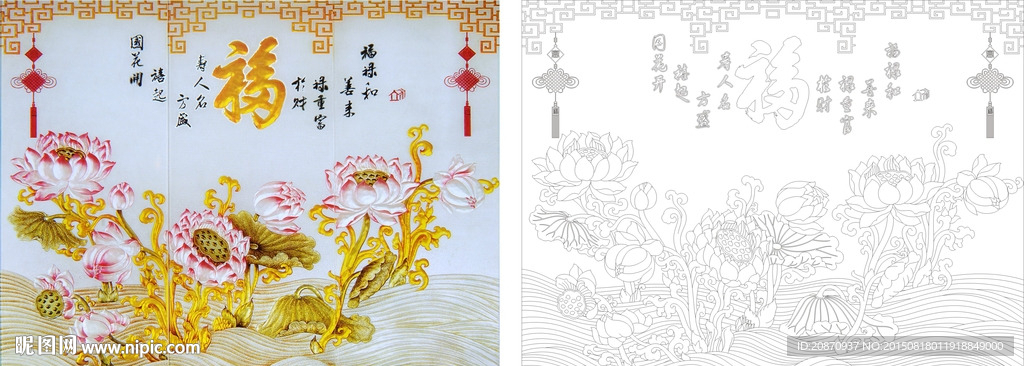 國花開
禧起
寿人名
方盛
福
於財
禄重富
善来
福禄和
昵图网 www.nipic.com
国花开
禧起
寿人名
方盛
福
於财
禄重富
善来
福禄和
ID:20870937 NO:20150818011918849000